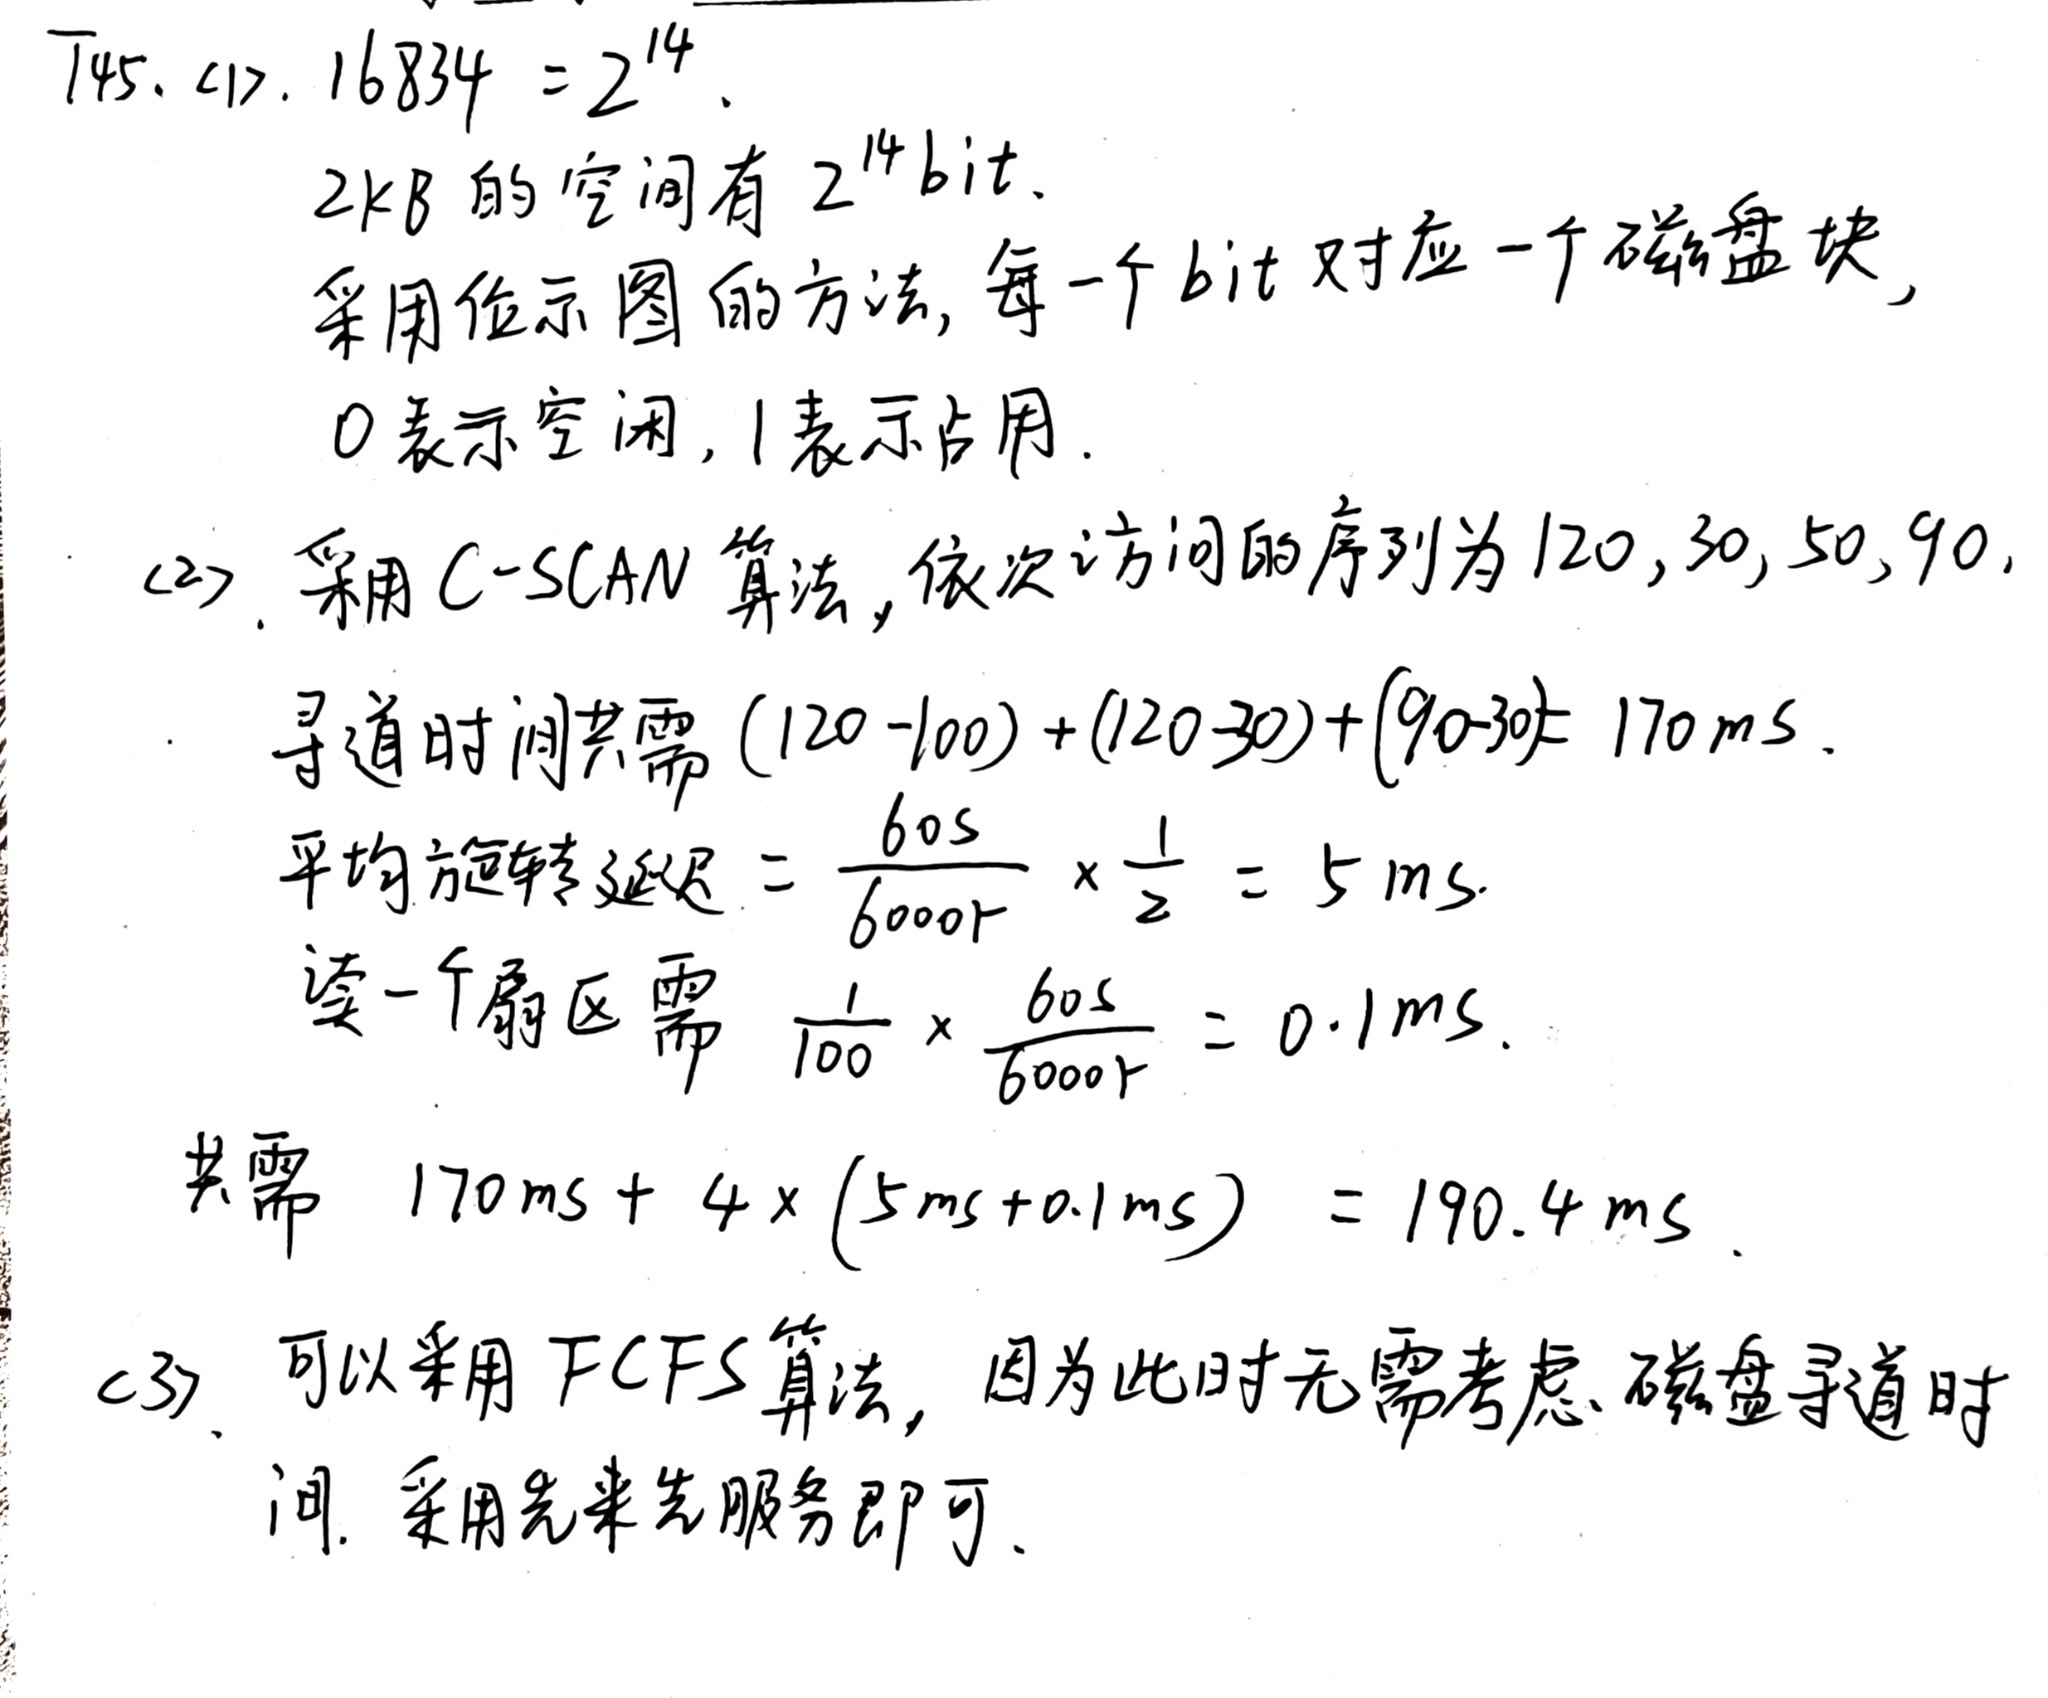 T45. <1>. 16834 = 2^14.
2KB 的空间有 2^14 bit.
采用位示图的方法, 每一个 bit 对应一个磁盘块,
0 表示空闲, 1 表示占用.
<2>. 采用 C-SCAN 算法, 依次访问的序列为 120, 30, 50, 90.
寻道时间共需 (120-100)+(120-30)+(90-30)= 170ms.
平均旋转延迟 = 60s/6000r × 1/2 = 5ms.
读一个扇区需 1/100 × 60s/6000r = 0.1ms.
共需 170ms + 4×(5ms+0.1ms) = 190.4ms.
<3>. 可以采用 FCFS 算法, 因为此时无需考虑磁盘寻道时
间. 采用先来先服务即可.